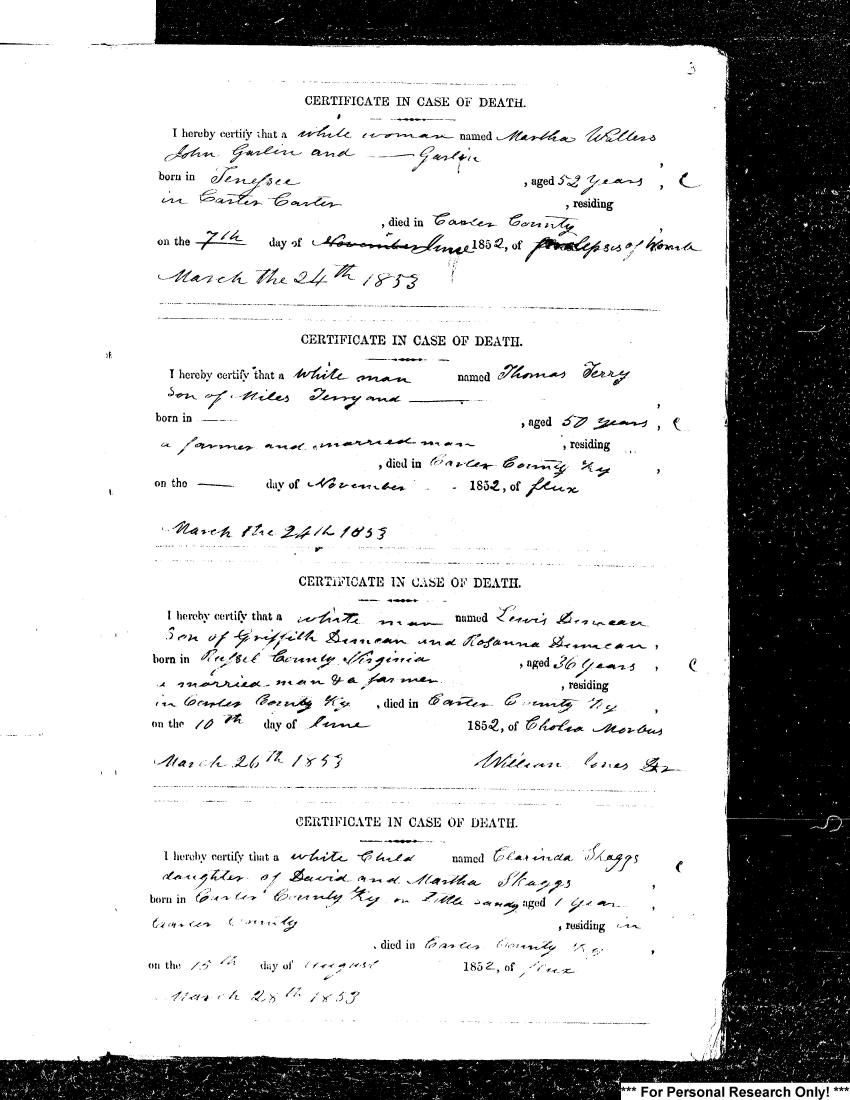 3
CERTIFICATE IN CASE OF DEATH.
I hereby certify that a white woman named Martha Walters
John Garlin and —— Garlin
born in Tenessee , aged 52 years , C
in Carter Carter , residing
, died in Carter County
on the 7th day of November June 1852, of of Womb
March the 24th 1853
CERTIFICATE IN CASE OF DEATH.
I hereby certify that a white man named Thomas Terry
Son of Miles Terry and ——
born in —— , aged 50 years , C
a farmer and married man , residing
, died in Carter County Ky ,
on the —— day of November 1852, of flux
March the 24th 1853
CERTIFICATE IN CASE OF DEATH.
I hereby certify that a white man named Lewis Duncan
Son of Griffith Duncan and Rosanna Duncan ,
born in Russel County Virginia , aged 36 years , C
a married man & a farmer , residing
in Carter County Ky , died in Carter County Ky ,
on the 10th day of June 1852, of Cholra Morbus
March 26th 1853 William Jones
CERTIFICATE IN CASE OF DEATH.
I hereby certify that a white Child named Clarinda Skaggs C
daughter of David and Martha Skaggs ,
born in Carter County Ky on Little sandy aged 1 year ,
Carter County , residing in
, died in Carter County Ky ,
on the 15th day of August 1852, of flux
March 28th 1853
*** For Personal Research Only! ***